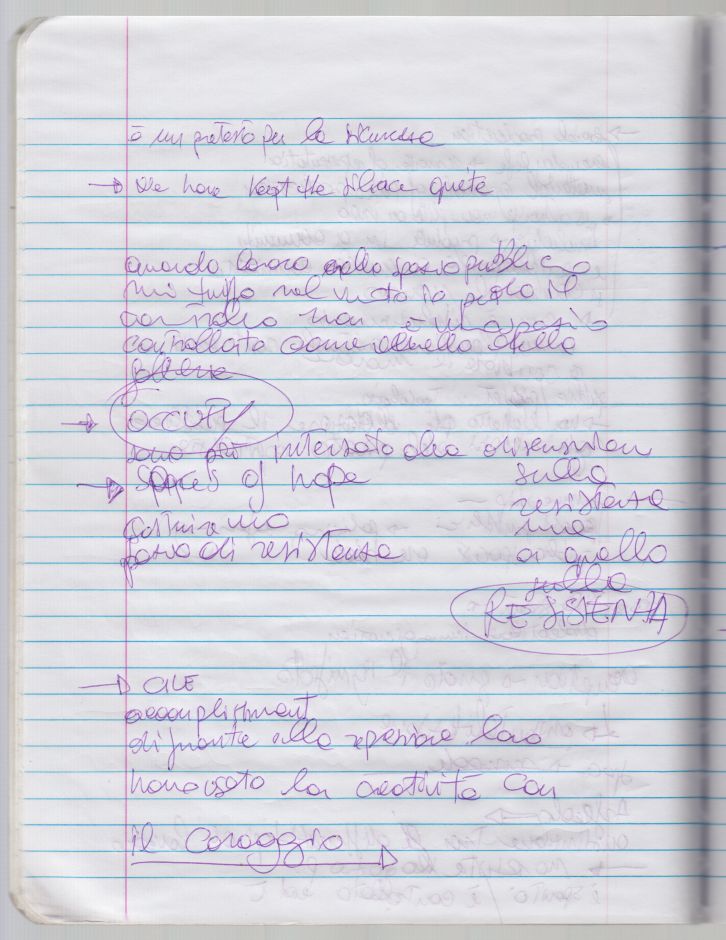 è un pretesto per la sicurezza
→ We have kept the place quite
quando lavoro nello spazio pubblico
mi tuffo nel vuoto io perdo il
controllo non è uno spazio
controllato come quello della
OCCUPY
sono più interessato alla discussion
→ Spaces of hope
sulla
resistenza
costruiamo
ma
di resistenza
a quello
sulla
RESISTENZA
→ ALE
accomplishment
di fronte alla repressione loro
hanno usato la creatività con
il coraggio